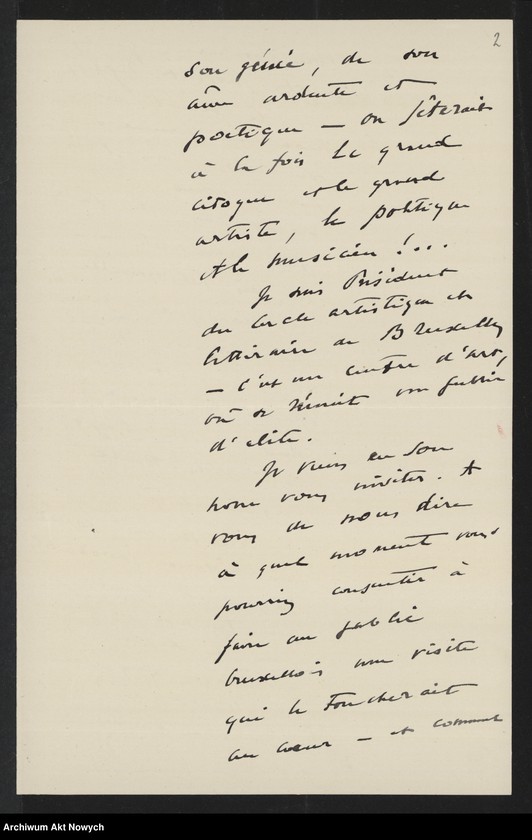 2
son génie, de son
âme ardente et
poétique — on fêterait
à la fois le grand
citoyen et le grand
artiste, le politique
et le musicien !...
Je suis Président
du Cercle artistique et
littéraire de Bruxelles
— c'est un centre d'art,
où se réunit un public
d'élite.
Je viens en son
nom vous inviter. A
vous de nous dire
à quel moment vous
pourriez consentir à
faire au public
bruxellois une visite
qui le toucherait
au cœur — et comment
Archiwum Akt Nowych